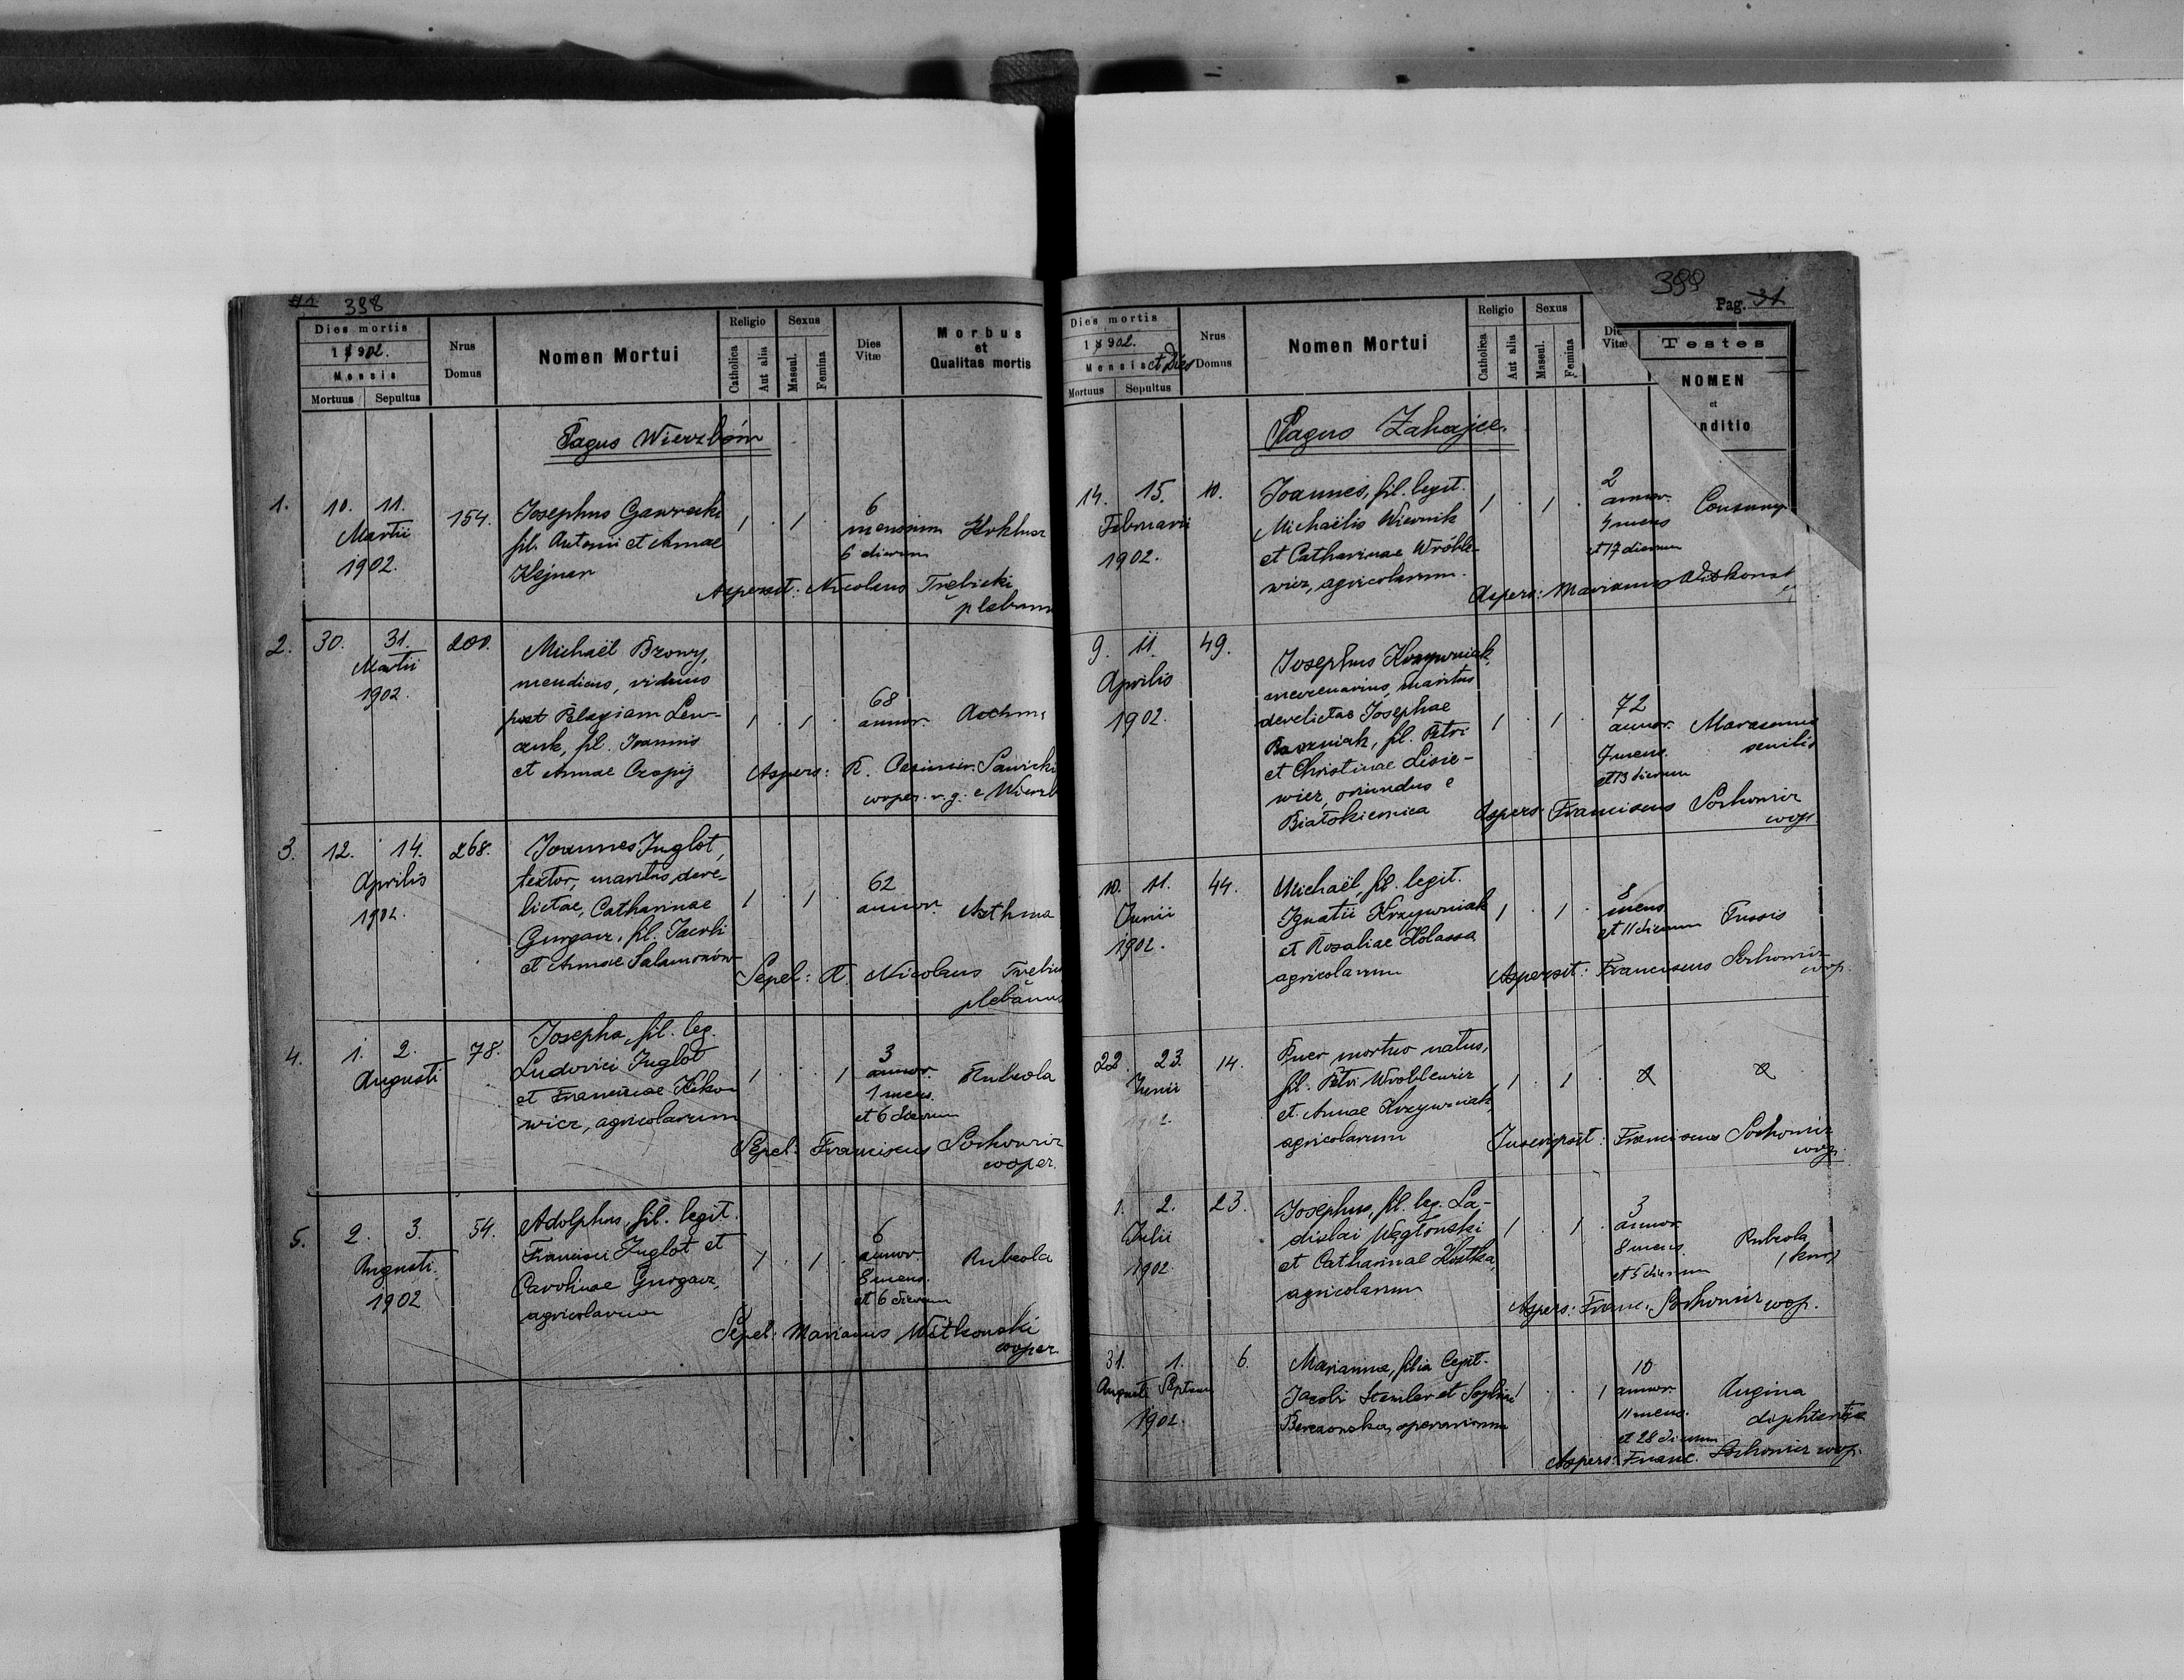 398
Dies mortis
1902.
Mensis
Mortuus Sepultus
Nrus Domus
Nomen Mortui
Religio
Catholica Aut alia
Sexus
Mascul. Femina
Dies Vitæ
Morbus et Qualitas mortis
Pagus Wierzbów
1. 10. 11. Martii 1902. 154.
Josephus Gawrecki
fil. Antonii et Annae
Kejnar
1 . 1 .
6 mensium
6 dierum
Aspersit: Nicolaus Trzebicki
2. 30. 31. Martii 1902. 200.
Michaël Browy,
mendicus, viduus
post Pelagiam Lew-
czuk, fil. Joannis
et Annae Czopij
1 . 1 .
68
annor.
Aspers: R. Casimir. Sawicki
cooper. r. g. e Wierzb
3. 12. 14. Aprilis 1902. 268.
Joannes Inglot,
textor, maritus dere-
lictae, Catharinae
Gurgacz, fil. Jacobi
et Annae Salamonów
1 . 1 .
62
annor. Asthma
Sepel: R. Nicolaus
plebanus
4. 1. 2. Augusti 78.
Josepha, fil. leg.
Ludovici Inglot
et Franciscae
wicz, agricolarum
1 . . 1
3
annor.
1 mens.
et 6 dierum
Rubeola
Sepel: Franciscus
cooper.
5. 2. 3. Augusti 1902 54.
Adolphus, fil. legit.
Francisci Inglot et
Carolinae Gurgacz,
agricolarum
1 . 1 .
6
annor.
8 mens.
et 6 dierum
Rubeola
Sepel: Marianus Witkowski
cooper.
399
Pag. 31
Dies mortis
1902.
Mensis et Dies
Mortuus Sepultus
Nrus Domus
Nomen Mortui
Religio
Catholica Aut alia
Sexus
Mascul. Femina
Vitæ
Testes
NOMEN
et
nditio
Pagus Zahajce.
14. 15. Februarii 1902. 10.
Joannes, fil. legit.
Michaëlis Wiernik
et Catharinae Wróble-
wicz, agricolarum.
1 . 1 .
2
annor.
4 mens
et 17 dierum
Aspers: Marianus
9. 11. Aprilis 1902. 49.
Josephus Krzywniak,
mercenarius, maritus
derelictae Josephae
fil. Petri
et Christinae Lisie-
wicz, oriundus e
Białokiernica
1 . 1 .
72
annor.
7 mens.
et 13 dierum
Marasmus
senilis
Aspers: Franciscus
coop.
10. 11. Junii 1902. 44.
Michaël, fil. legit.
Ignatii Krzywniak
et Rosaliae Kolassa
agricolarum
1 . 1 .
8
mens
et 11 dierum
Tussis
Aspersit: Franciscus
coop.
22. 23. Junii 1902. 14.
Puer mortuo natus,
fil. Petri Wróblewicz
et Annae Krzywniak,
agricolarum
1 . 1 .
Inscripsit: Franciscus
coop.
1. 2. Julii 1902. 23.
Josephus, fil. leg. La-
dislai Węgłowski
et Catharinae Kostka,
agricolarum
1 . 1 .
3
annor.
8 mens.
et 5 dierum
Rubeola
Aspers: Franc. coop.
31. 1. Augusti Septem 1902. 6.
Marianna, filia legit.
Jacobi et Sophiae
operariorum
1 . . 1
10
annor.
11 mens.
et 28 dierum
Angina
Aspers: Franc. coop.